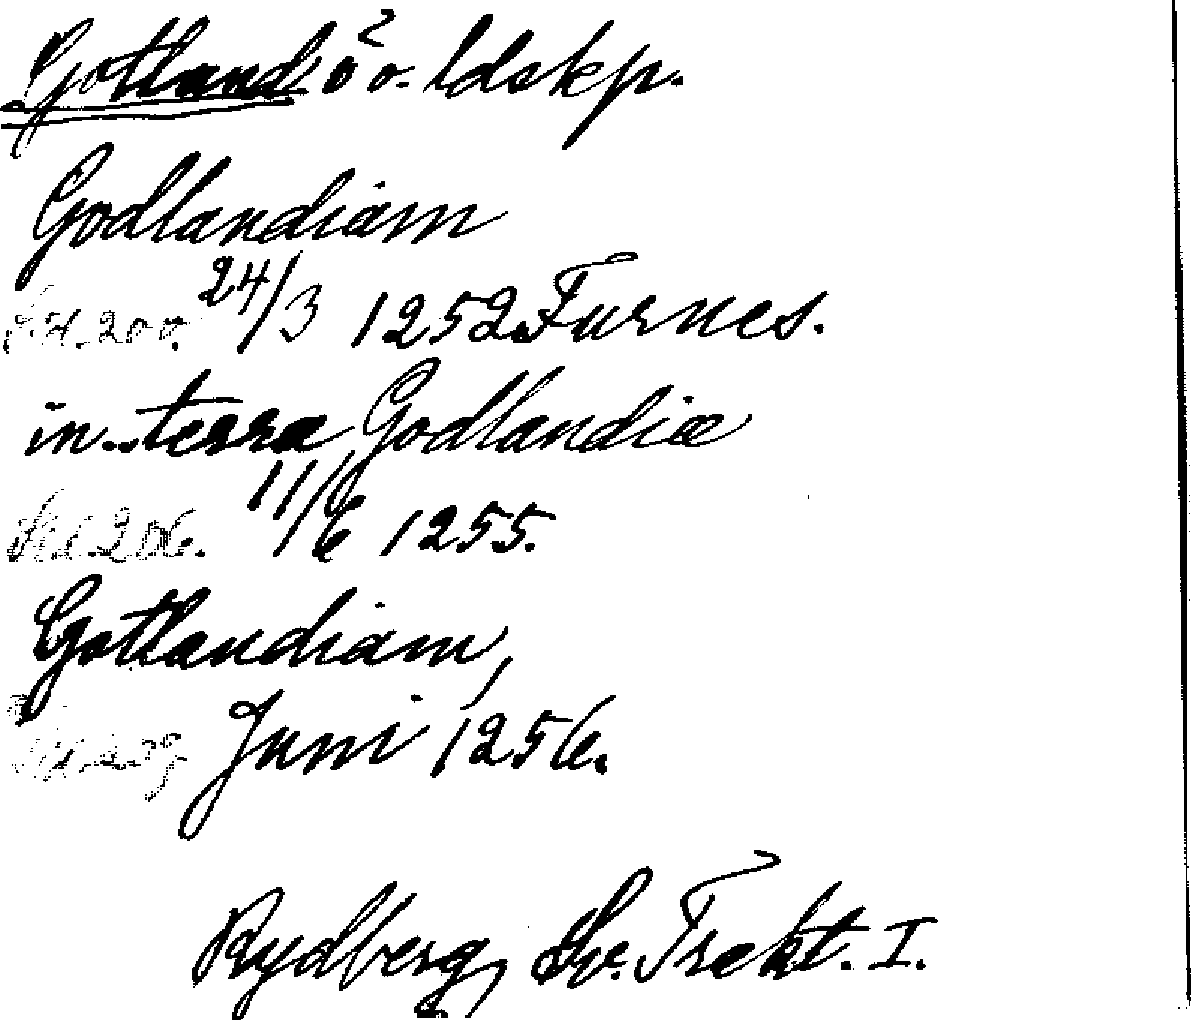 Gotland ö o. ldskp.
Godlandiam
s. 200. 24/3 1252 Furnes.
in..terra Godlandiæ
s. 206. 11/6 1255.
Gotlandiam,
Juni 1256.
Rydberg, Sv. Trakt. I.